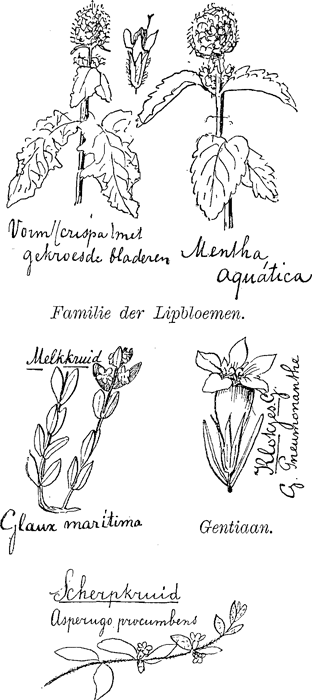 Vorm (crispa) met
gekroesde bladeren
Mentha
aquática
Familie der Lipbloemen.
Melkkruid
Glaux marítima
Klokjes G.
G. Pneumonanthe
Gentiaan.
Scherpkruid
Asperugo procumbens